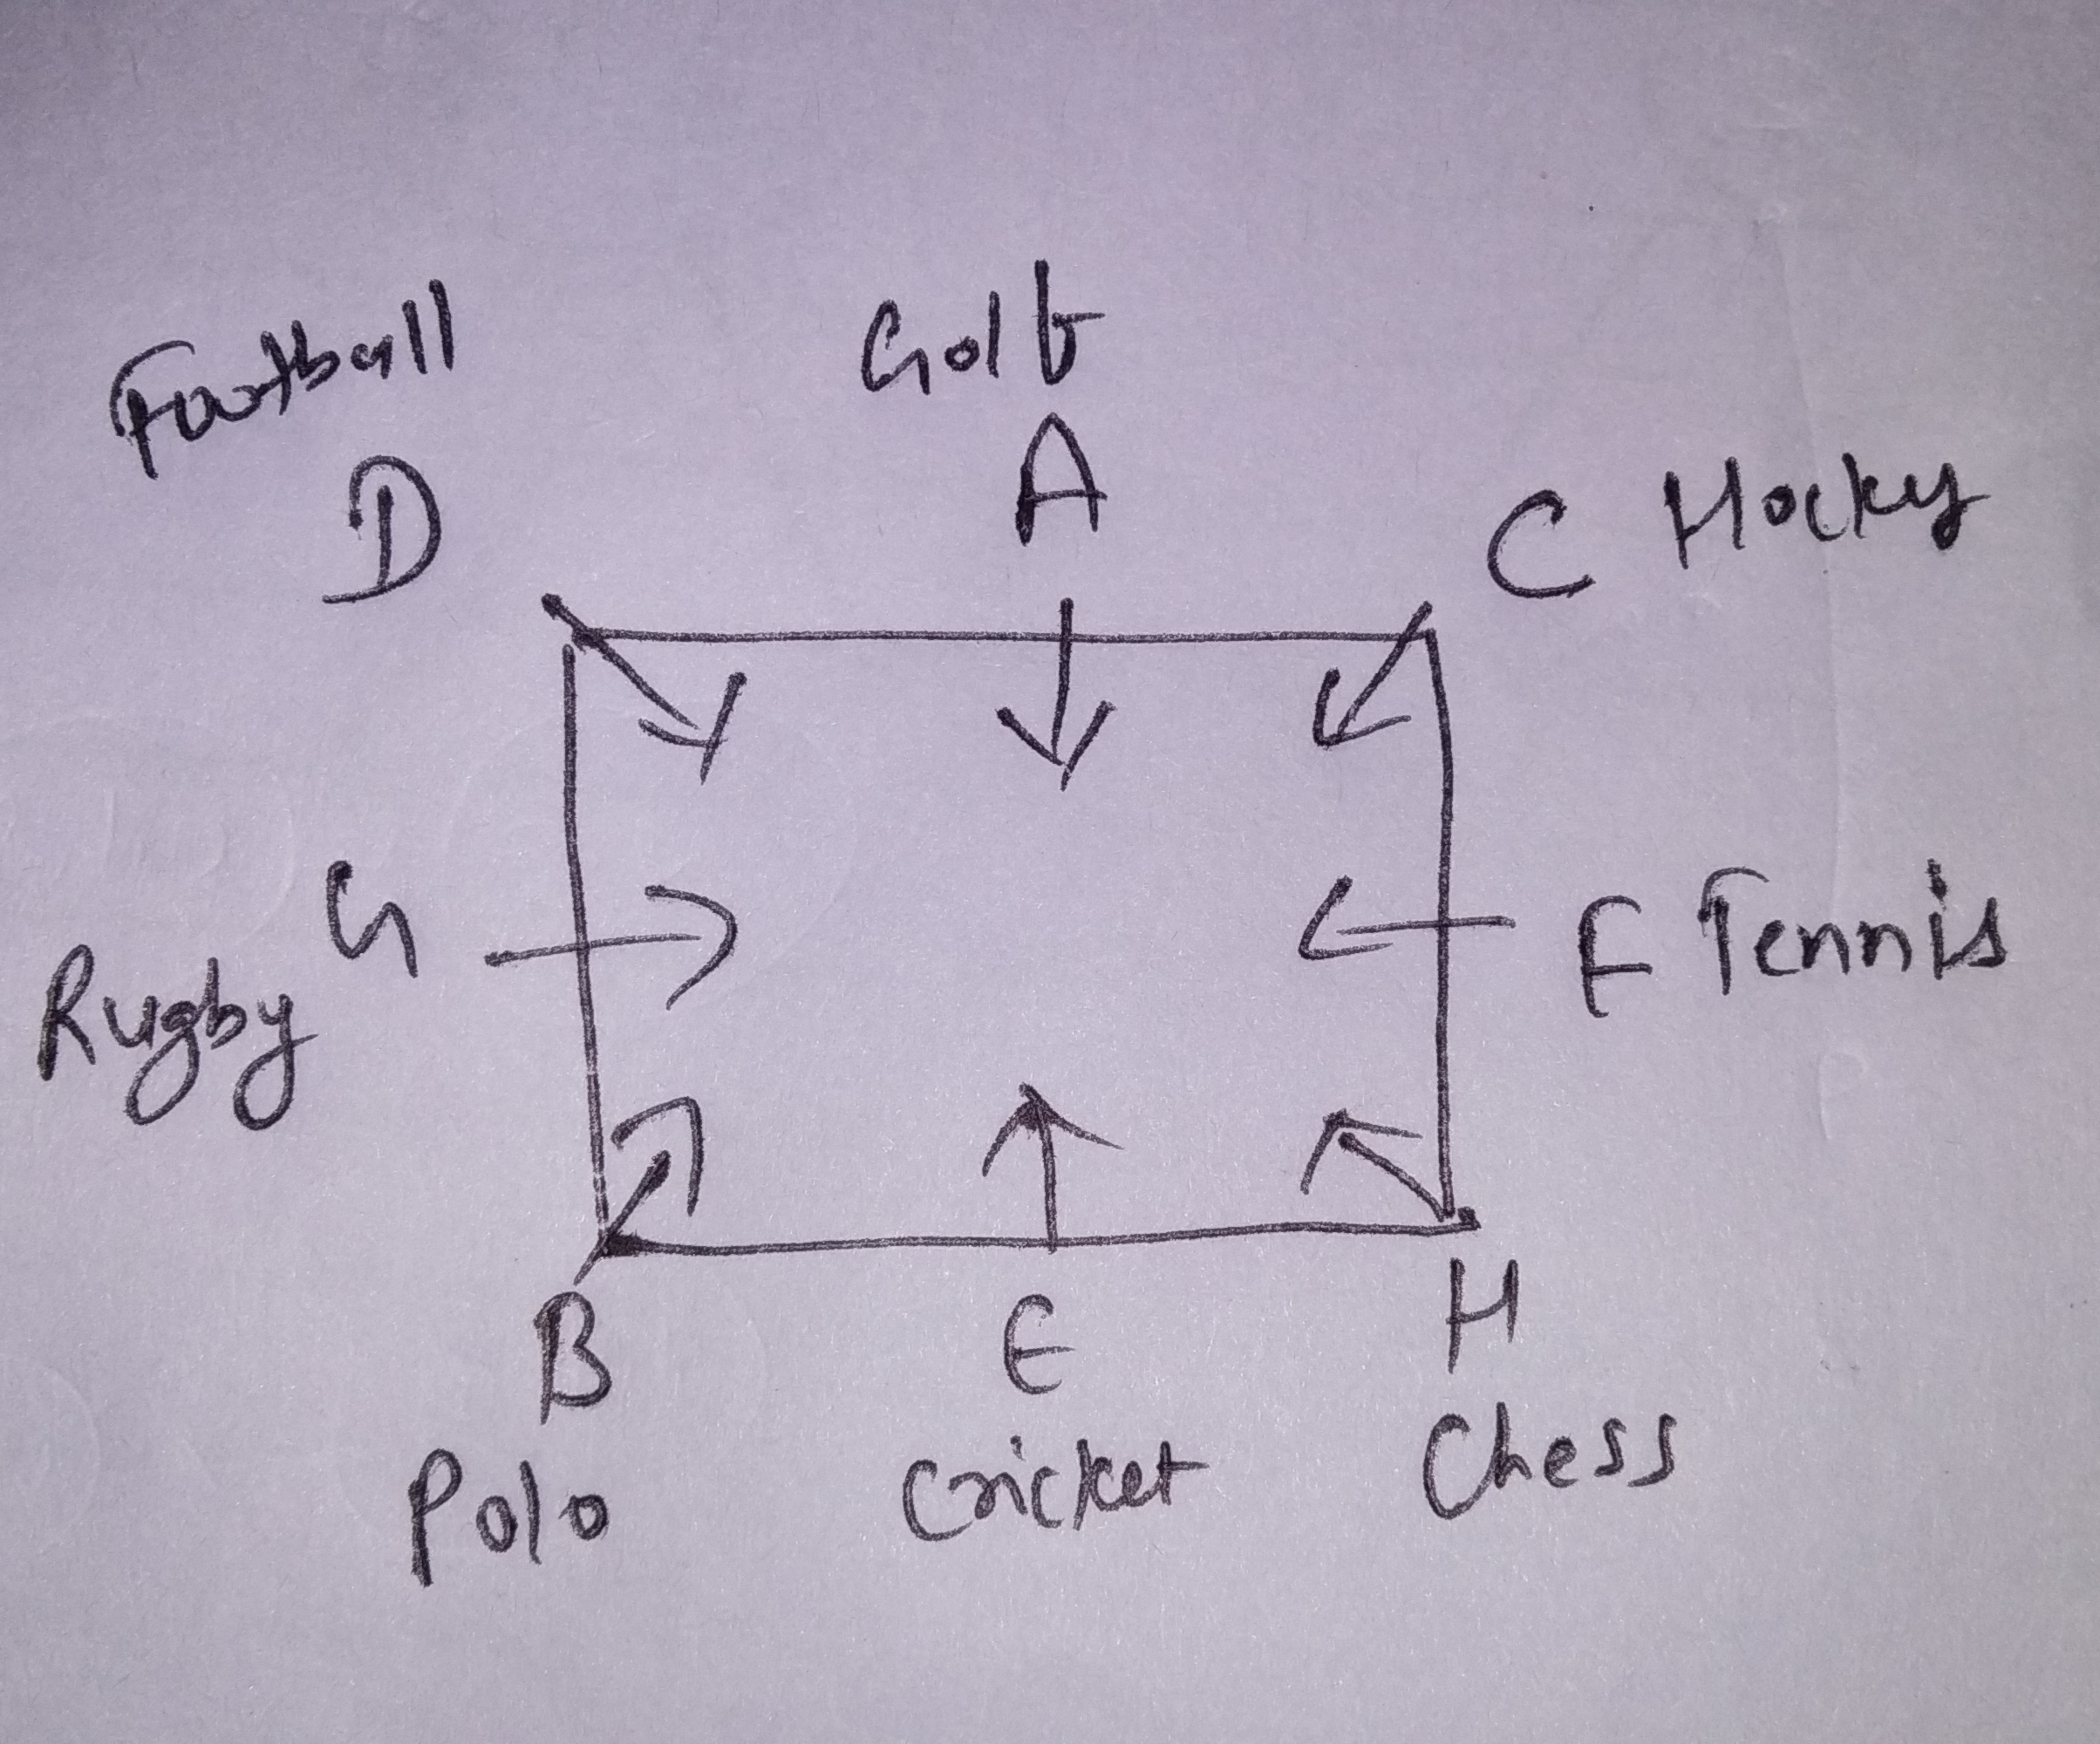 Football
Golf
D
A
C Hocky
G
Rugby
F Tennis
B
E
H
Polo
Cricket
Chess